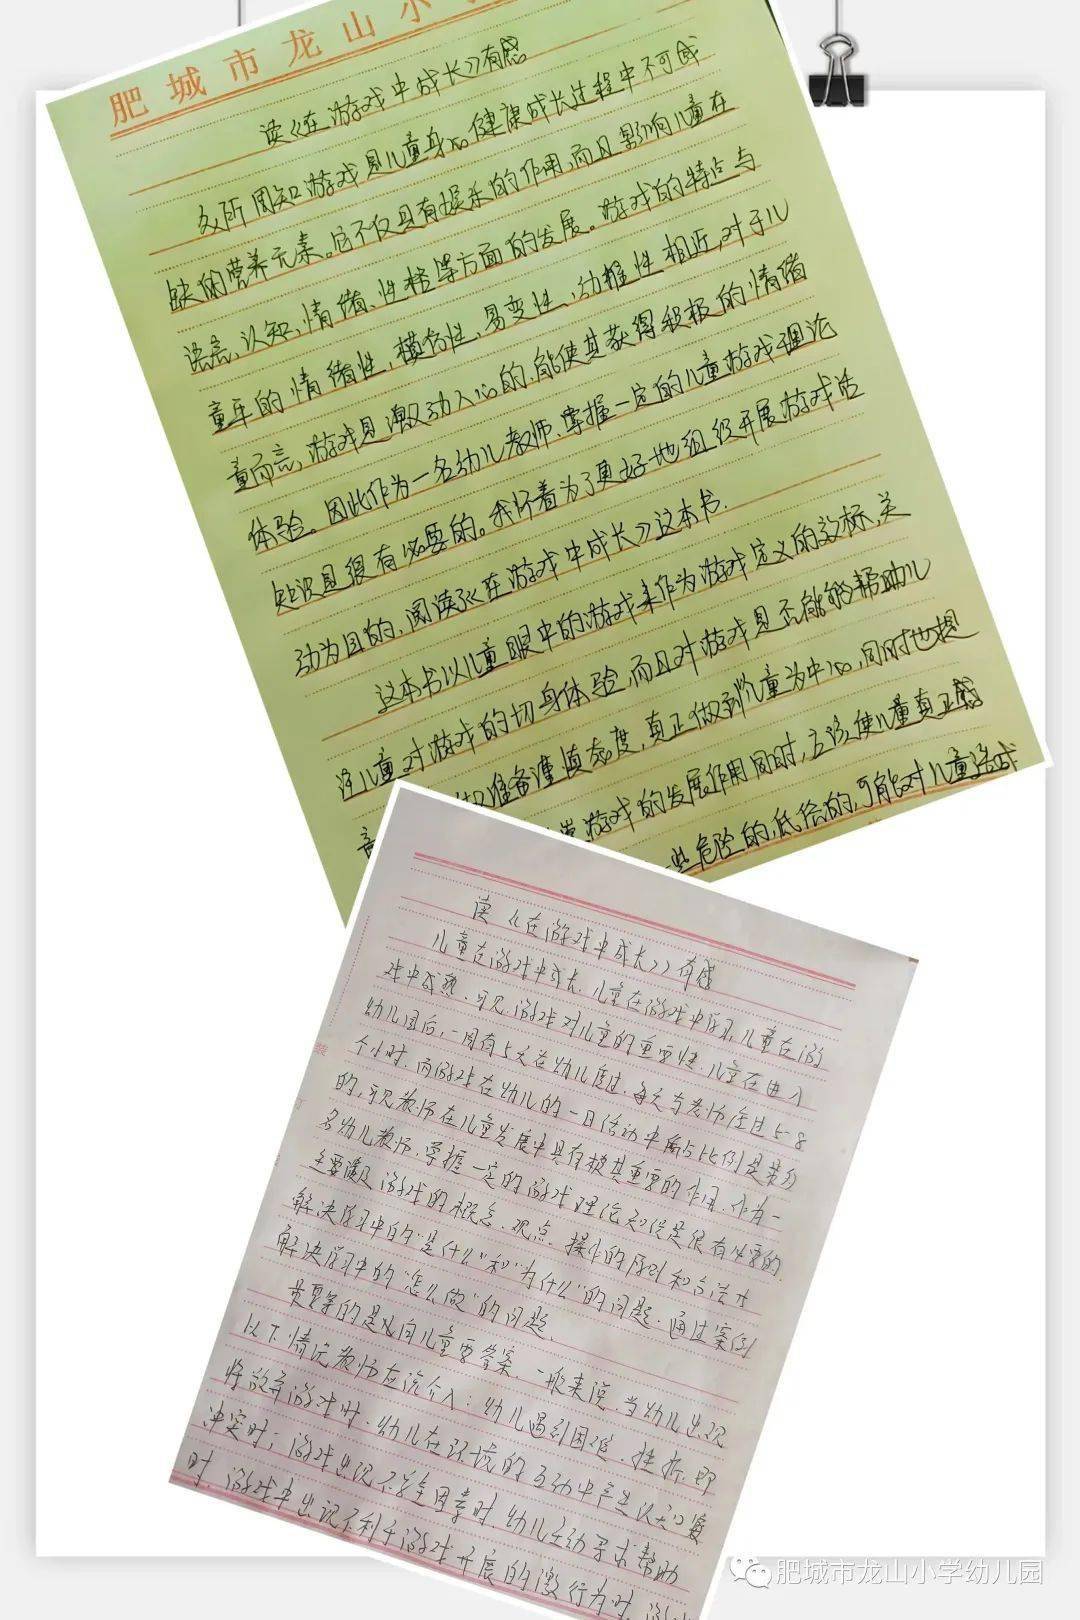 肥城市龙山小
读《在游戏中成长》有感
众所周知游戏是儿童身心健康成长过程中不可或
缺的营养元素。它不仅具有娱乐的作用,而且影响儿童在
语言、认知、情绪、性格等方面的发展。游戏的特点与
童年的情绪性,模仿性,易变性、幼稚性相近,对于儿
童而言,游戏是激动人心的,能使其获得积极的情绪
体验。因此作为一名幼儿教师、掌握一定的儿童游戏理论
知识是很有必要的。我怀着为了更好地组织开展游戏活
动为目的,阅读了《在游戏中成长》这本书.
这本书以儿童眼中的游戏来作为游戏定义的效标,关
注儿童对游戏的切身体验,而且对游戏是否能够帮助儿
准备谨慎态度,真正做到儿童为中心,同时也提
游戏的发展作用同时,应该使儿童真正感
些危险的,低俗的,可能对儿童造成
读《在游戏中成长》有感
儿童在游戏中成长,儿童在游戏中学习,儿童在游
戏中成熟.可见游戏对儿童的重要性.儿童在进入
幼儿园后,一周有5天在幼儿度过,每天与老师度过5-8
个小时.而游戏在幼儿的一日活动中所占比例是最多
的,可见教师在儿童发展中具有极其重要的作用.作为一
名幼儿教师,掌握一定的游戏理论知识是很有必要的.
主要涉及游戏的概念、观点、操作的原则和方法等
解决学习中的"是什么"和"为什么"的问题.通过案例
解决学习中的"怎么做"的问题.
最重要的是向儿童要答案,一般来说,当幼儿出现
以下情况教师应该介入:幼儿遇到困难、挫折,即
将放弃游戏时.幼儿在环境的互动中产生认知
冲突时;游戏出现不安全因素时.幼儿主动寻求帮助
时.游戏中出现不利于游戏开展的过激行为时.
肥城市龙山小学幼儿园